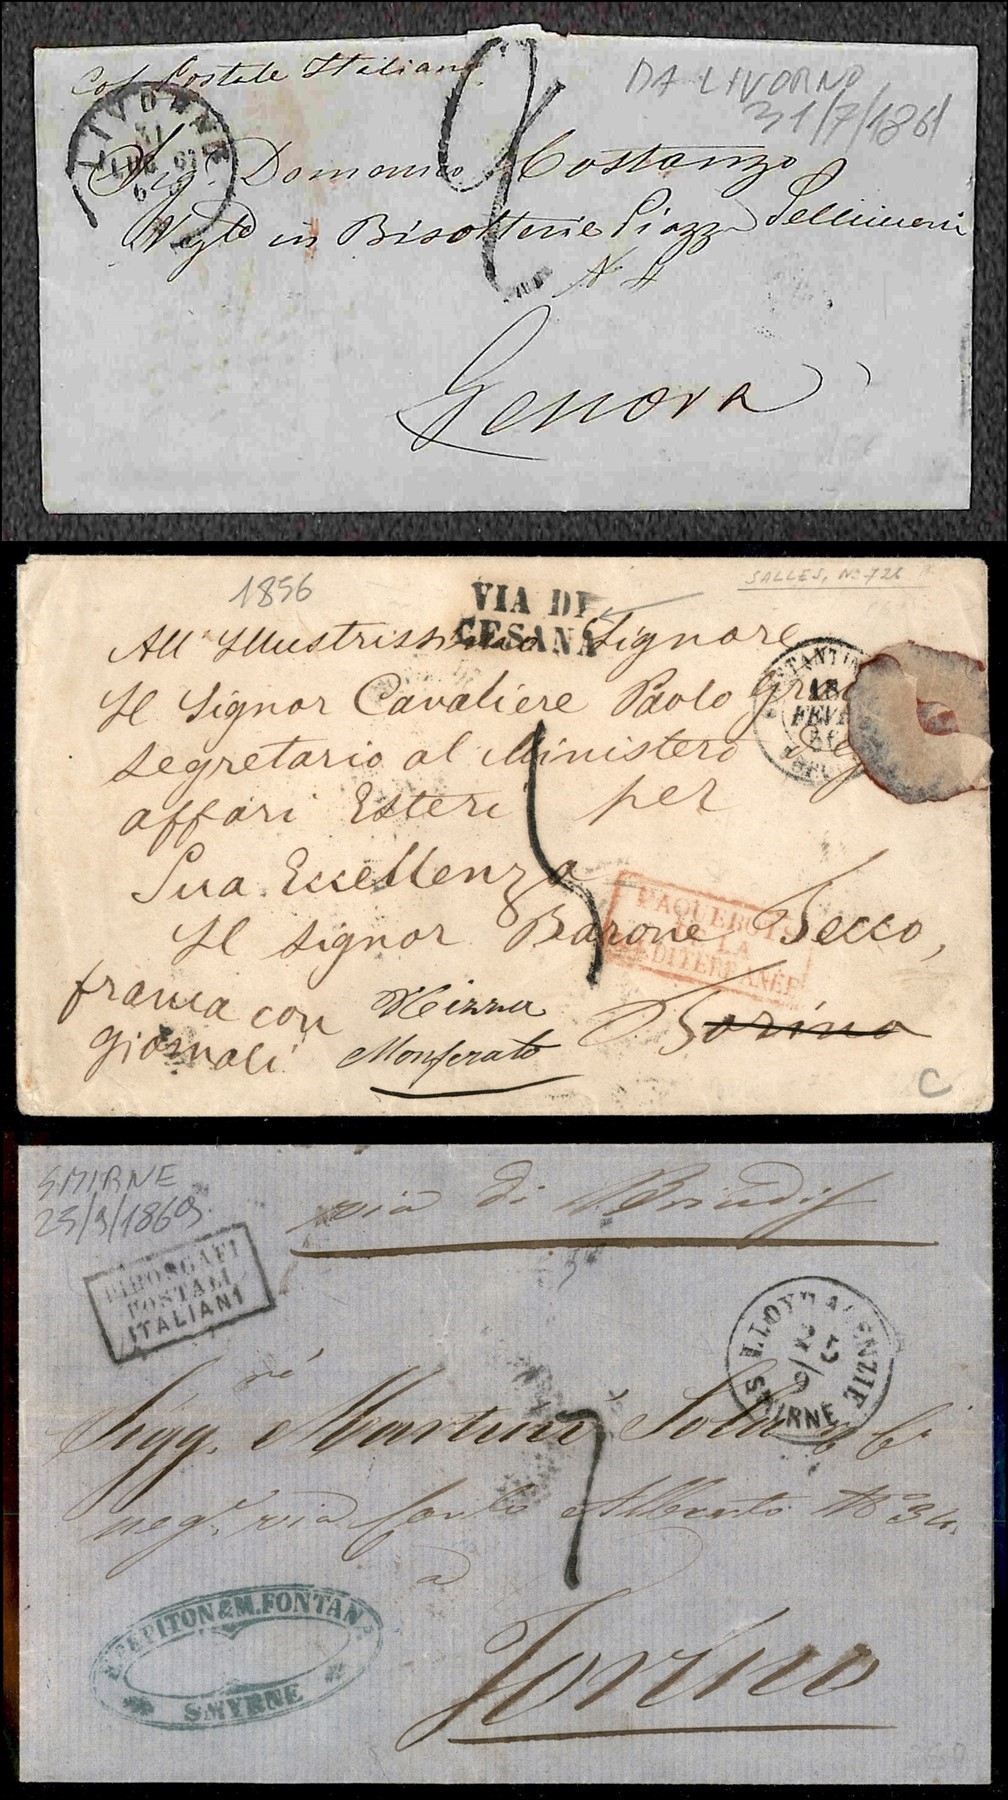 Col Postale Italiano
DA LIVORNO
31/7/1861
LIVORNO
31
LUG 61
Sig. Domenico Costanzo
Negte in Bisotterie Piazza
N 4
Genova
1856
SALLES, No 726
VIA DI
CESANA
All' Illustrissimo Signore
Il Signor Cavaliere Paolo
Segretario al Ministero
affari Esteri per
Sua Eccellenza
Il Signor Barone Tecco,
franca con
giornali
Nizza
Monferato
Torino
18
FEVR
PAQUEBOTS
DE LA
MEDITERRANÉE
C
SMIRNE
25/9/1869
via di Brindisi
PIROSCAFI
POSTALI
ITALIANI
LLOYD AGENZIE
25
9
SMIRNE
Sigg.ri Martini Sola e Ci
negti via Carlo Alberto No 34.
7
a
Torino
PEPITON & M. FONTANA
SMYRNE